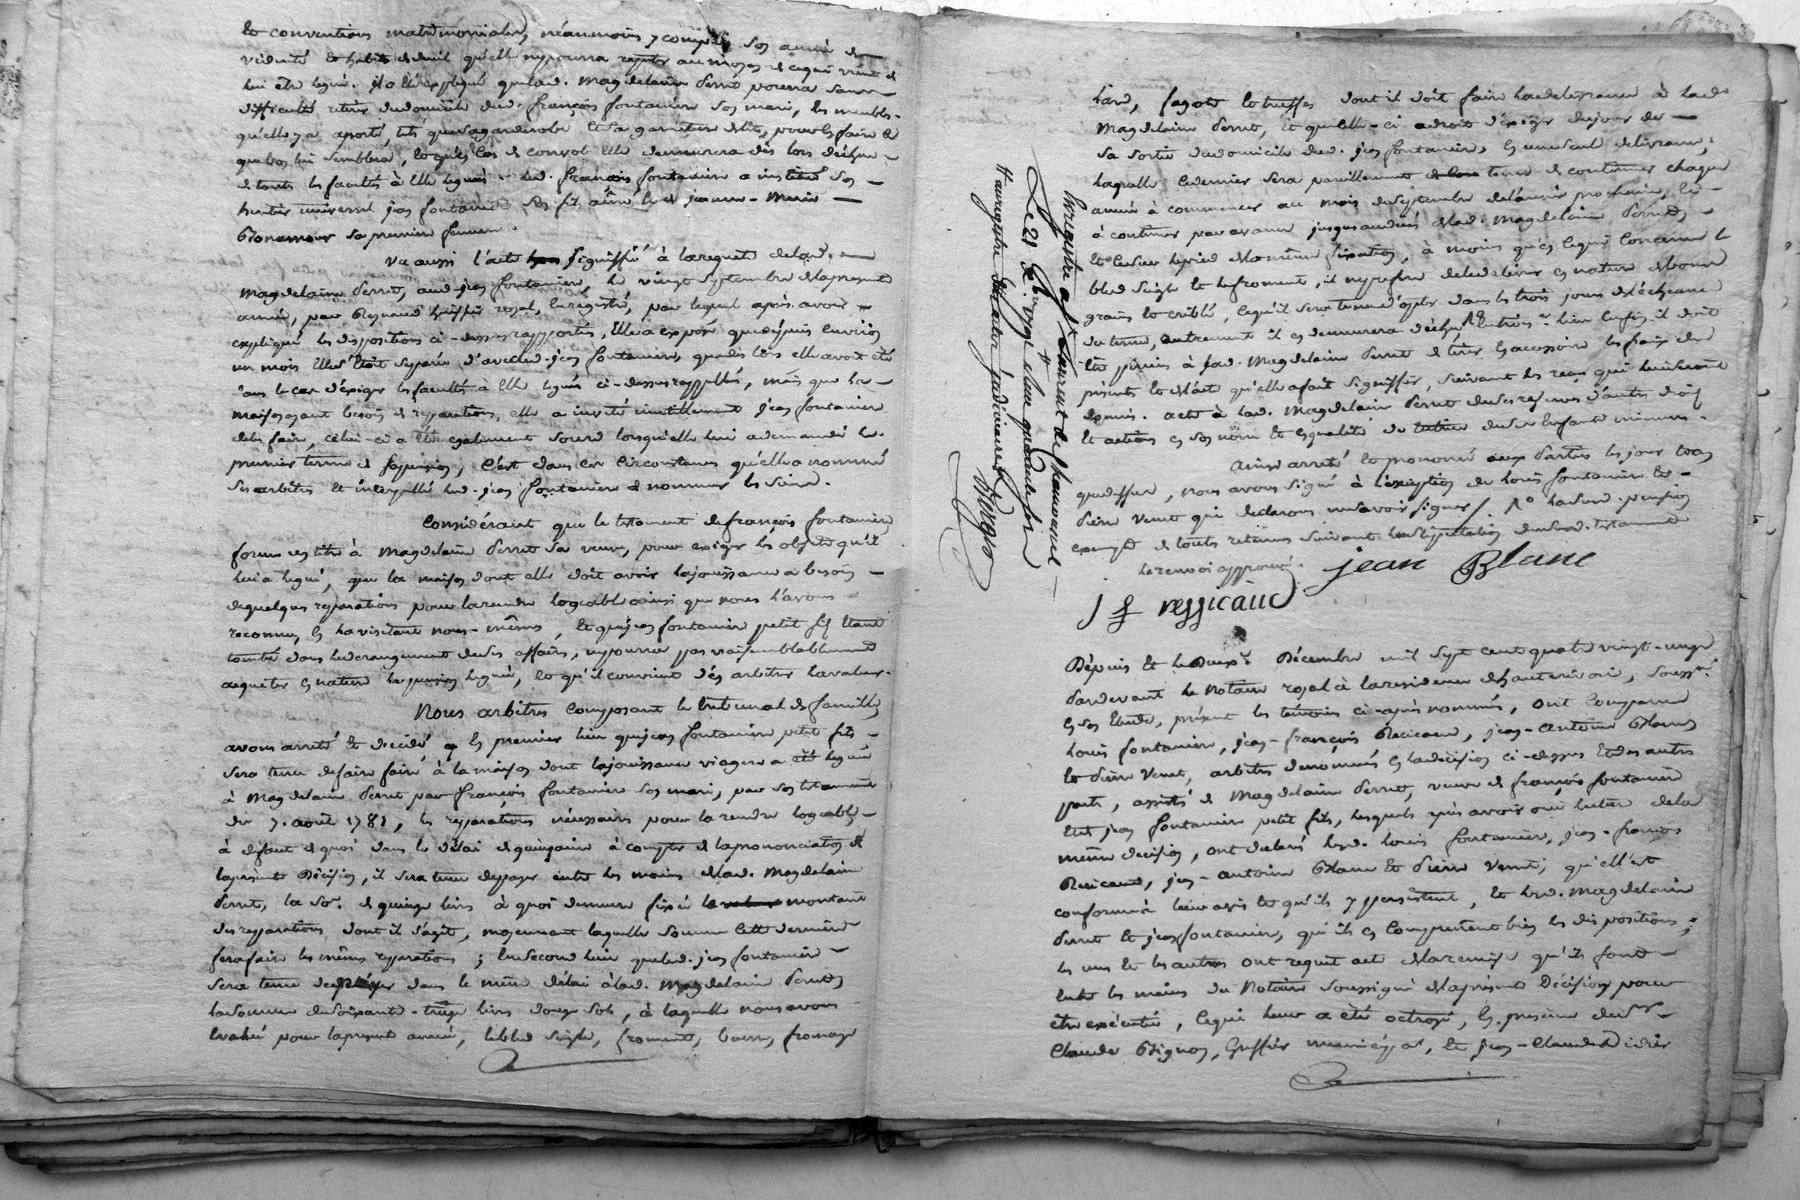 et conventions matrimoniales, néanmoins y compris son année de
viduité et habits de deuil qu'elle ny pourra repeter au moyen de ce qui vient de
lui être legué. Il a été expliqué que lad. Magdelaine Perret pourra sans
difficulté retirer du domicile dud. françois fontanier son mari, les meubles
qu'elle y a aporté, tels que sa garderobe et sa garniture de lit, pour les faire ce
que bon lui semblera, et qu'en cas de convol elle demeurera dès lors déchue
de touts les facultés à elle legués. led. françois fontanier a institué son
heritier universel jean fontanier son fils ainé et de jeanne-Marie
Bonamour sa premiere femme.
Vu aussi l'acte signiffié à la requete de lad.
Magdelaine Perret, aud. jean fontanier, le vingt septembre de la presente
année, par Reynaud huissier royal, enregistré, par lequel après avoir
expliqué les dispositions ci-dessus rapportées, elle a exposé que depuis environ
un mois elle s'était separée d'avec led. jean fontanier, que dès lors elle avoit été
dans le cas d'exiger les facultés à elle legués ci-dessus rappellés, mais que la
maison ayant besoin de reparations, elle a invité inutillement jean fontanier
de les faire, celui-ci a été egalement sourd lorsqu'elle lui a demandé le
premier terme de sa pension, c'est dans ces circonstances qu'elle a nommé
ses arbitres et interpellé led. jean fontanier de nommer les siens.
Considérant que le testament de françois fontanier
forme un titre à Magdelaine Perret sa veuve, pour exiger les objets qu'il
lui a legué, que la maison dont elle doit avoir la jouissance a besoin
de quelques reparations pour la rendre logeable ainsi que nous l'avons
reconnu en la visitant nous-mêmes, et que jean fontanier petit fils étant
tombé dans le derangement de ses affaires, ny pourra pas vraisemblablement
acquiter en nature la pension leguée, et qu'il convient d'en arbitrer la valeur.
Nous arbitres composant le tribunal de famille,
avons arreté et decidé en premier lieu que jean fontanier petit fils
sera tenu de faire faire à la maison dont la jouissance viagere a été leguée
à Magdelaine Perret par françois fontanier son mari, par son testament
du 7. août 1781, les reparations nécessaires pour la rendre logeable
à defaut de quoi dans le délai de quinzaine à compter de la prononciation de
la presente Décision, il sera tenu de payer entre les mains de lad. Magdelaine
Perret, la so.e de quinze livres à quoi demeure fixée le montant
des reparations dont il s'agit, moyennant laquelle somme cette derniere
fera faire les mêmes reparations; En second lieu que led. jean fontanier
sera tenu de payer dans le même délai à lad. Magdelaine Perret
la somme de soixante-treize livres douze sols, à laquelle nous avons
evalué pour la presente année, le bled seigle, froment, beurre, fromage
lard, fagots et truffes dont il doit faire la delivrance à lad.
Magdelaine Perret, et que celle-ci a droit d'exiger du jour de
sa sortie du domicile dud. jean fontanier, en une seule delivrance,
laquelle ce dernier sera pareillement tenu de continuer chaque
année à commencer au mois de septembre de l'année prochaine, et
à continuer par avance jusques au decès de lad. Magdelaine Perret
bled seigle et le froment, il ny prefere de le delivrer en nature de bon
grain et criblé, ce qu'il sera tenu d'opter dans les trois jours de l'echeance
du terme, autrement il en demeurera déchu. En trois.e lieu enfin il doit
présente et de l'acte qu'elle a fait signiffier, suivant les reçus qui lui seront
donnés. acte à lad. Magdelaine Perret de ses reserves d'autres droits
et actions en son nom et en qualité de tutrice de ses enfants mineurs.
Ainsi arreté et prononcé aux Parties les jour et an
que dessus, nous avons signé à l'exception de louis fontanier et
Pierre Venet qui declarons ne savoir signer. 1.o lad. pension
exempte de toutes retenues suivant la stipulation du susd. testament
le renvoi approuvé. jean Blanc
j f ressicaud
Enregistré à S.t Laurent de Chamousset
Le 21 X.bre 1791 reçu quarante sols
H au registre des actes judiciaires
Verger
Dépuis et le Deux.e Décembre mil sept cent quatre vingt-onze
Pardevant le Notaire royal à la residence de hauterivoire, soussi.é
en son Etude, présent les témoins ci-après nommés, ont comparu
Louis fontanier, jean-françois Ressicaud, jean-antoine Blanc
et Pierre Venet, arbitres denommés en la decision ci-dessus et des autres
parts, assistés de Magdelaine Perret, veuve de françois fontanier
et de jean fontanier petit fils, lesquels après avoir oui lecture de la
même decision, ont declaré led. louis fontanier, jean-françois
Ressicaud, jean-antoine Blanc et Pierre Venet, qu'elle est
conforme à leur avis et qu'ils y persistent, et lad. Magdelaine
Perret et jean fontanier, qu'ils en comprennent bien les dispositions;
les uns et les autres ont requit acte de la remise qu'ils font
entre les mains du Notaire soussigné de la presente Décision pour
être executée, ce qui leur a été octroyé, En presence de s.r
Claude Bignon, Greffier municipal, et jean-Claude Didier